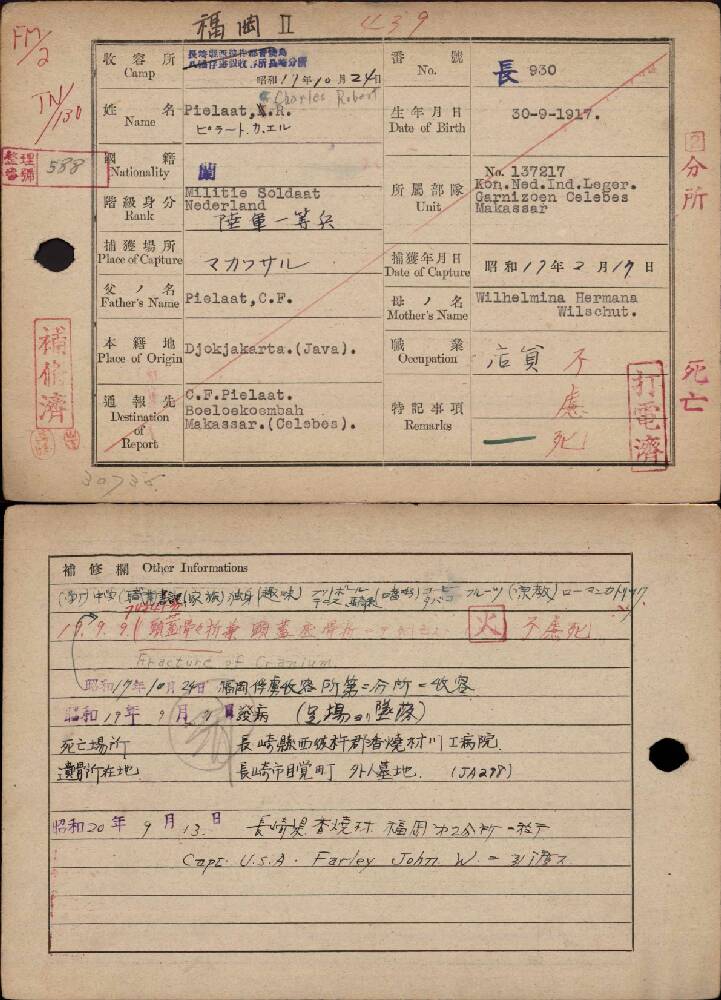 福岡 II
439
FM/2
IN/130
収容所 Camp
昭和17年10月24日
番號 No. 長 930
姓名 Name Pielaat, .R.
Charles Robert
ピラート.カ.エル
生年月日 Date of Birth 30-9-1917.
整理番號 588
國籍 Nationality 蘭
階級身分 Rank Militie Soldaat
Nederland
陸軍一等兵
所屬部隊 Unit No. 137217
Kon.Ned.Ind.Leger.
Garnizoen Celebes
Makassar
2分所
捕獲場所 Place of Capture マカツサル
捕獲年月日 Date of Capture 昭和17年2月17日
父ノ名 Father's Name Pielaat,C.F.
母ノ名 Mother's Name Wilhelmina Hermana
Wilschut.
本籍地 Place of Origin Djokjakarta.(Java).
職業 Occupation 店員
通報先 Destination of Report C.F.Pielaat.
Boeloekoembah
Makassar.(Celebes).
特記事項 Remarks
不慮死
補修濟
打電濟
死亡
30735
補修欄 Other Informations
19.9.9.
火 不慮死
Fracture of Cranium
昭和17年10月24日 福岡俘虜收容所第二分所ニ收容
昭和19年9月9日發病 (足場ヨリ墜落)
死亡場所 長崎縣西彼杵郡香燒村川工病院.
遺骨所在地 長崎市目覚町 外人墓地. (JA298)
昭和20年9月13日 長崎県香燒村 福岡第2分所ニ於テ
Capt. U.S.A. Farley John. W. ニ引渡ス